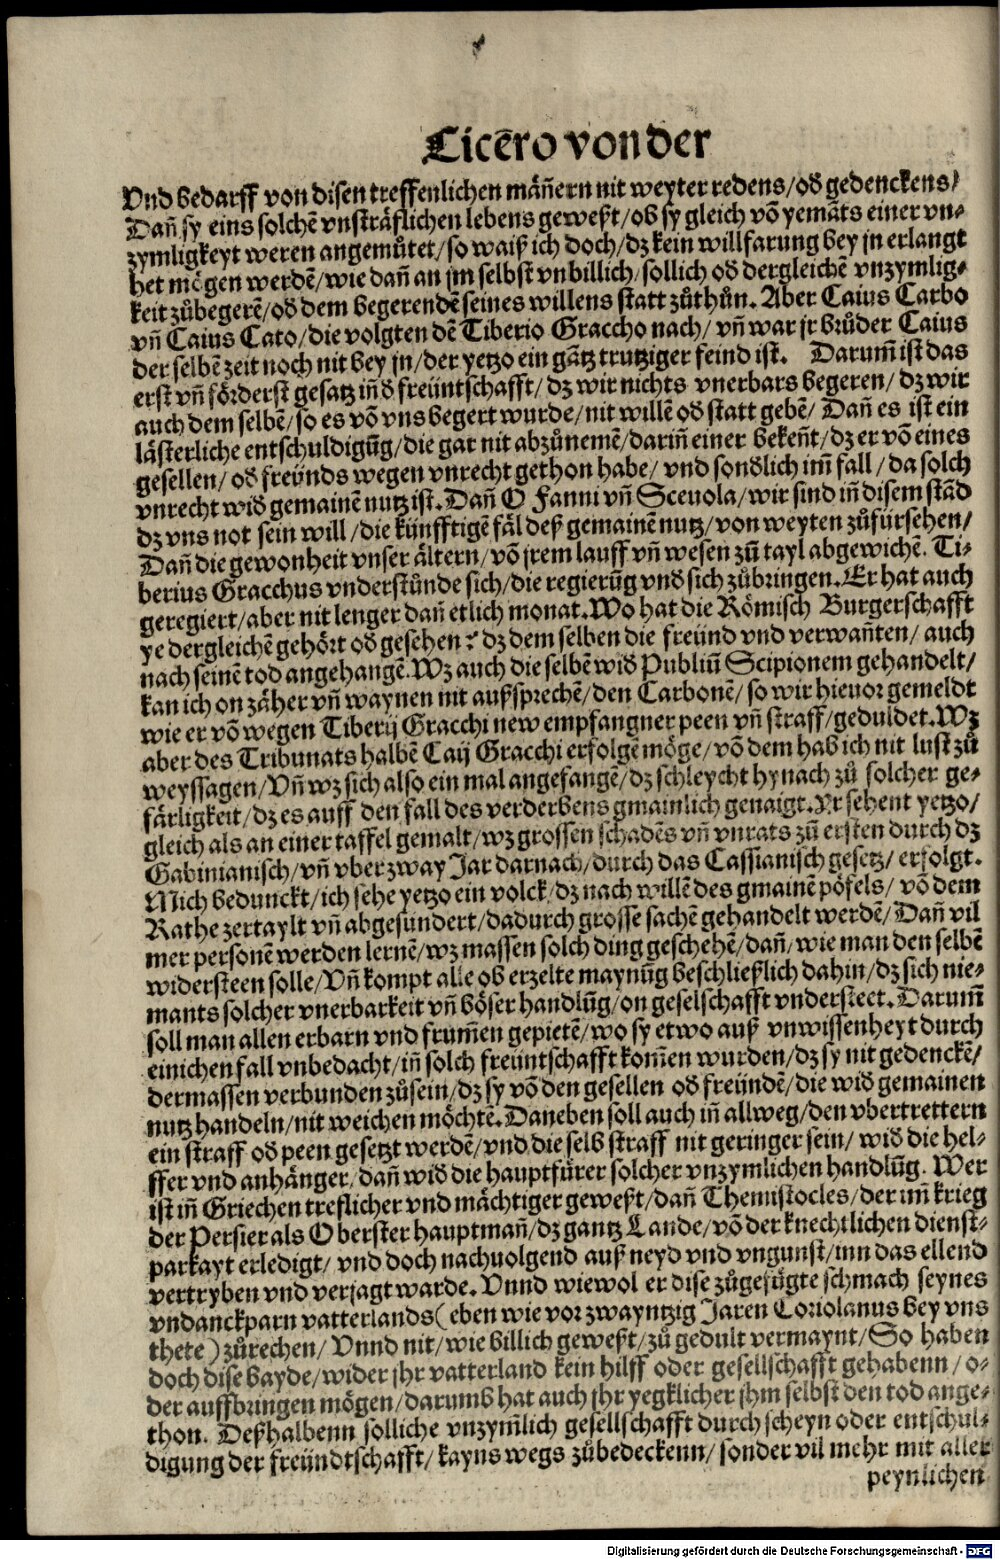 Cicẽro von der
Vnd bedarff von disen treffenlichen mäñern nit weyter redens/ od̕ gedenckens/
Dañ sy eins solchẽ vnsträflichen lebens geweßt/ ob sy gleich võ yemãts einer vn-
zymligkeyt weren angemůtet/ so waiß ich doch/ dz kein willfarung bey jn erlangt
het mögen werdẽ/ wie dañ an jm selbst vnbillich/ sollich od̕ dergleichẽ vnzymlig-
keit zůbegerẽ/ od̕ dem begerendẽ seines willens statt zůthůn. Aber Caius Carbo
vñ Caius Cato/ die volgten dẽ Tiberio Graccho nach/ vñ war jr brůder Caius
der selbẽ zeit noch nit bey jn/ der yetzo ein gãtz trutziger feind ist. Darum̃ ist das
erst vñ förderst gesatz iñ d̕ freüntschafft/ dz wir nichts vnerbars begeren/ dz wir
auch dem selbẽ/ so es võ vns begert wurde/ nit willẽ od̕ statt gebẽ/ Dañ es ist ein
lästerliche entschuldigũg/ die gar nit abzůnemẽ/ dariñ einer bekeñt/ dz er võ eines
gesellen/ od̕ freünds wegen vnrecht gethon habe/ vnd sond̕lich im̃ fall/ da solch
vnrecht wid̕ gemainẽ nutz ist. Dañ O Fanni vñ Sceuola/ wir sind iñ disem stãd
dz vns not sein will/ die künfftigẽ fäl deß gemainẽ nutz/ von weyten zůfürsehen/
Dañ die gewonheit vnser ältern/ võ jrem lauff vñ wesen zũ tayl abgewichẽ. Ti-
berius Gracchus vnderstůnde sich/ die regierũg vnd̕ sich zůbringen. Er hat auch
geregiert/ aber nit lenger dañ etlich monat. Wo hat die Römisch Burgerschafft
ye dergleichẽ gehört od̕ gesehen? dz dem selben die freünd vnd verwañten/ auch
nach seinẽ tod angehangẽ. Wz auch die selbẽ wid̕ Publiũ Scipionem gehandelt/
kan ich on zäher vñ waynen nit außsprechẽ/ den Carbonẽ/ so wir hieuor gemeldt
wie er võ wegen Tiberij Gracchi new empfangner peen vñ straff/ geduldet. Wz
aber des Tribunats halbẽ Caij Gracchi erfolgẽ möge/ võ dem hab ich nit lust zů
weyssagen/ Vñ wz sich also ein mal angefangẽ/ dz schleycht hynach zů solcher ge-
färligkeit/ dz es auff den fall des verderbens gmainlich genaigt. Ir sehent yetzo/
gleich als an einer taffel gemalt/ wz grossen schadẽs vñ vnrats zũ ersten durch dz
Gabinianisch/ vñ vber zway Jar darnach/ durch das Cassianisch gesetz/ erfolgt.
Mich bedunckt/ ich sehe yetzo ein volck/ dz nach willẽ des gmainẽ pöfels/ võ dem
Rathe zertaylt vñ abgesündert/ dadurch grosse sachẽ gehandelt werdẽ/ Dañ vil
mer personẽ werden lernẽ/ wz massen solch ding geschehẽ/ dañ/ wie man den selbẽ
widersteen solle/ Vñ kompt alle ob erzelte maynũg beschließlich dahin/ dz sich nie-
mants solcher vnerbarkeit vñ böser handlũg/ on geselschafft vndersteet. Darum̃
soll man allen erbarn vnd frum̃en gepietẽ/ wo sy etwo auß vnwissenheyt durch
einichen fall vnbedacht/ iñ solch freüntschafft kom̃en wurden/ dz sy nit gedenckẽ/
dermassen verbunden zůsein/ dz sy võ den gesellen od̕ freündẽ/ die wid̕ gemainen
nutz handeln/ nit weichen möchtẽ. Daneben soll auch iñ allweg/ den vbertrettern
ein straff od̕ peen gesetzt werdẽ/ vnd die selb straff nit geringer sein/ wid̕ die hel-
ffer vnd anhänger/ dañ wid̕ die hauptfürer solcher vnzymlichen handlũg. Wer
ist iñ Griechen treflicher vnd mächtiger geweßt/ dañ Themistocles/ der im̃ krieg
der Persier als Oberster hauptmañ/ dz gantz Lande/ võ der knechtlichen dienst-
parkayt erledigt/ vnd doch nachuolgend auß neyd vnd vngunst/ inn das ellend
vertryben vnd verjagt warde. Vnnd wiewol er dise zůgefügte schmach seynes
vndanckparn vatterlands (eben wie vor zwayntzig Jaren Coriolanus bey vns
thete) zůrechen/ Vnnd nit/ wie billich geweßt/ zů gedult vermaynt/ So haben
doch dise bayde/ wider jhr vatterland kein hilff oder gesellschafft gehabenn/ o-
der auffbringen mögen/ darumb hat auch jhr yegklicher jhm selbst den tod ange-
thon. Deßhalbenn solliche vnzym̃lich gesellschafft durch scheyn oder entschul-
digung der freündtschafft/ kayns wegs zůbedeckenn/ sonder vil mehr mit aller
peynlichen
Digitalisierung gefördert durch die Deutsche Forschungsgemeinschaft - DFG